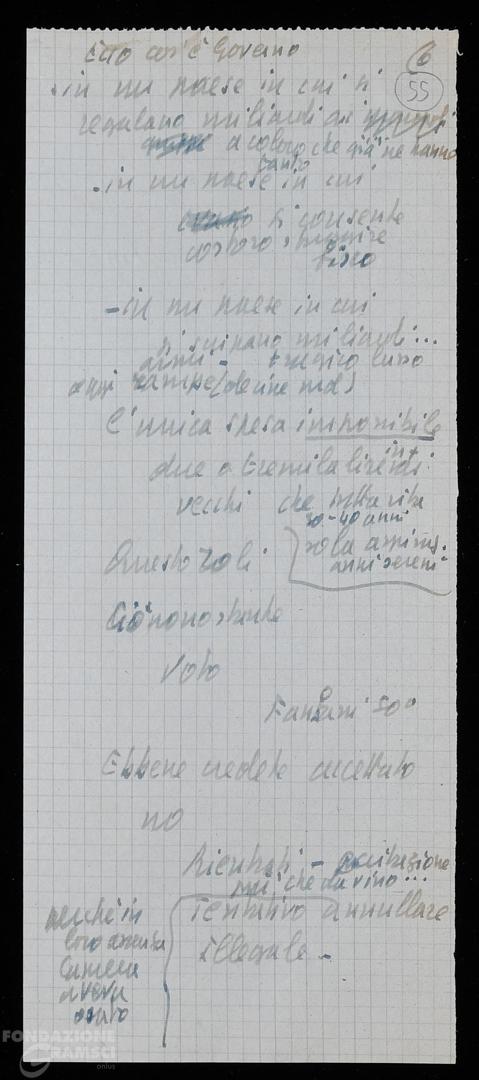 Ecco cos'è Governo
6
55
- in un paese in cui si
regalano miliardi
a coloro che già ne hanno
tanto
- in un paese in cui
si consente
costoro
fisco
- in un paese in cui
si miliardi...
armi - tragico lusso
ogni (decine md)
L'unica spesa imponibile
due o tremila lire
vecchi che tutta vita
30-40 anni
Questo Zoli
anni sereni
Ciò nonostante
Voto
Fanfani 50°
Ebbene credete accettato
no
Rientrati -
che da vino...
Tentativo annullare
illegale -
perché in
loro assenza
Camera
aveva
osato
FONDAZIONE
GRAMSCI
onlus